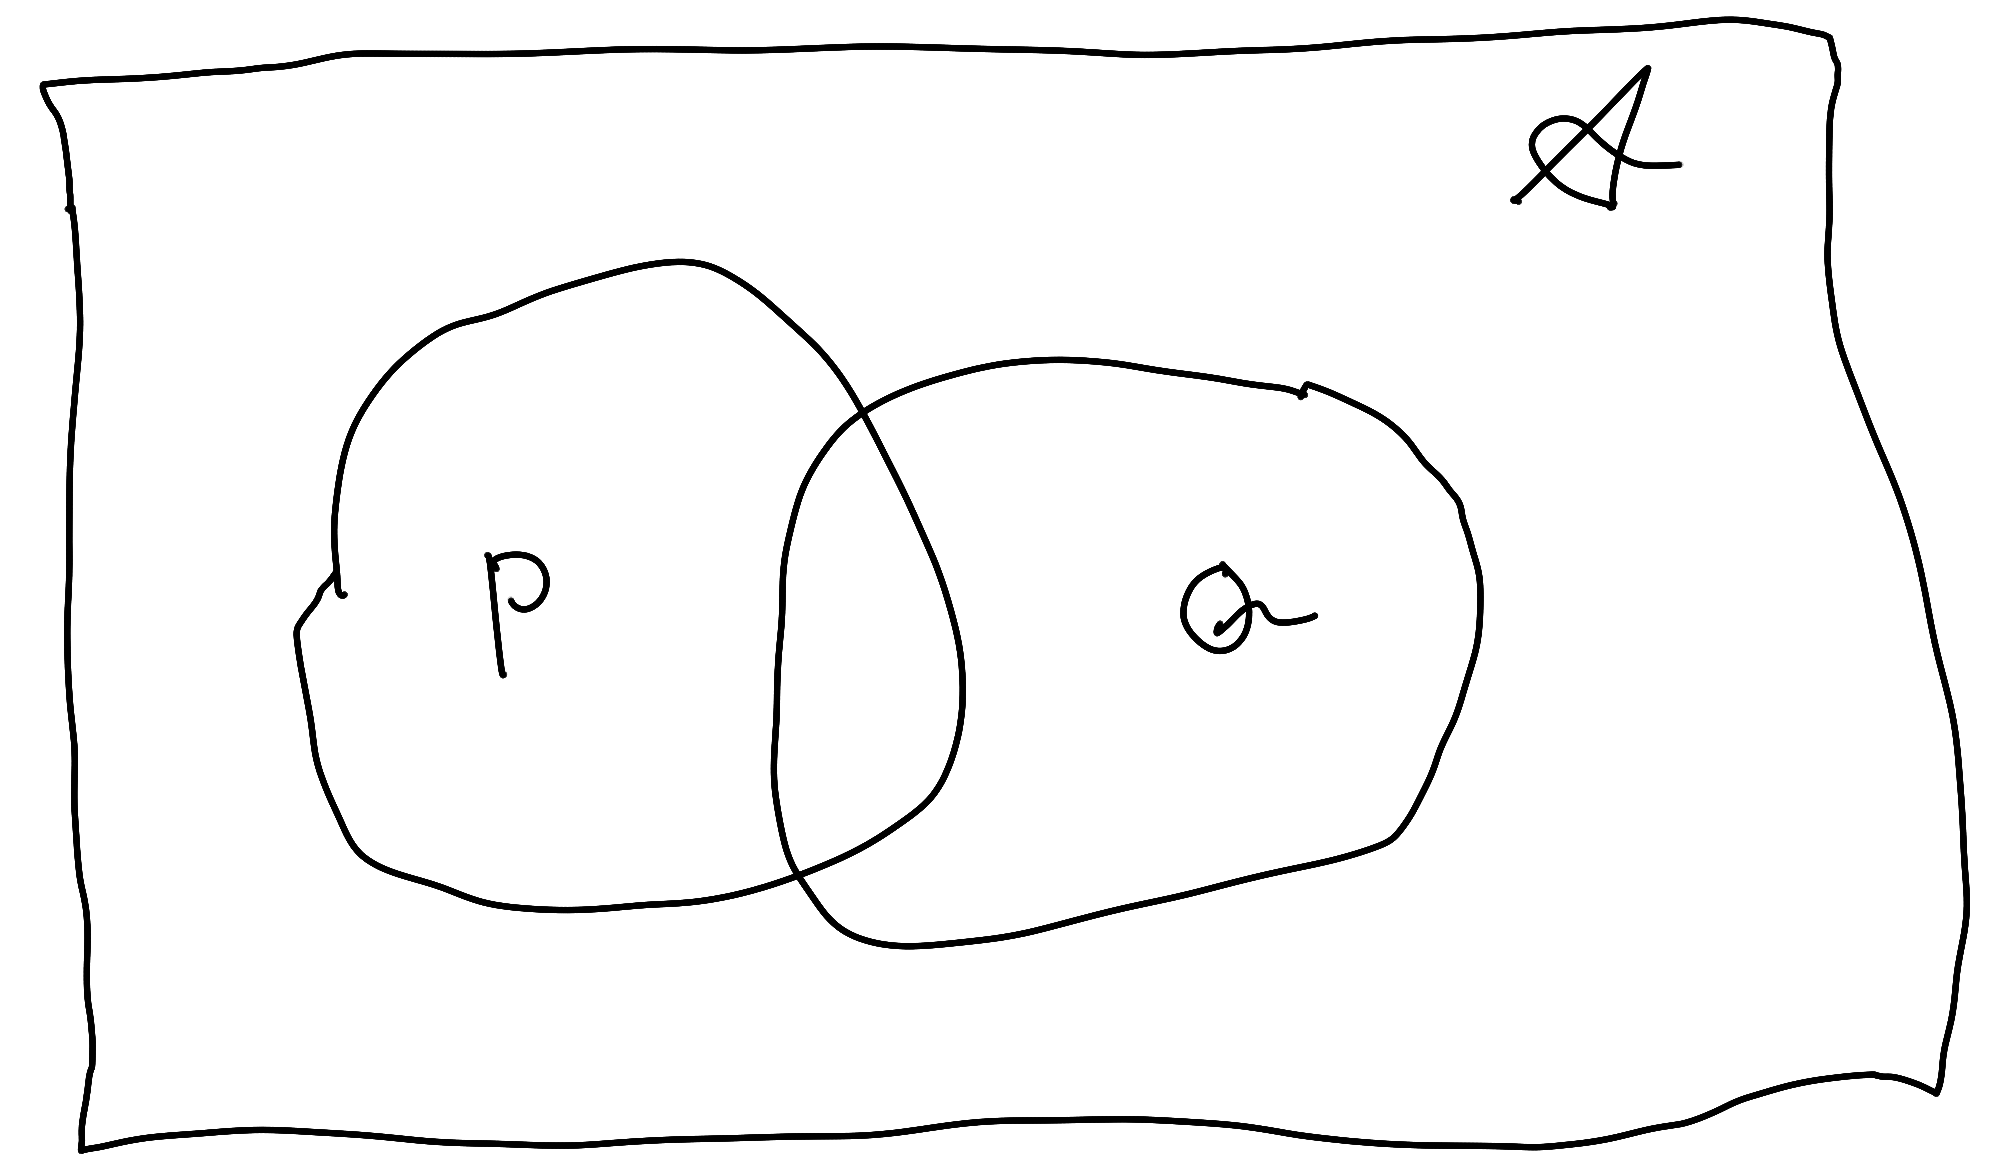 A
P
Q